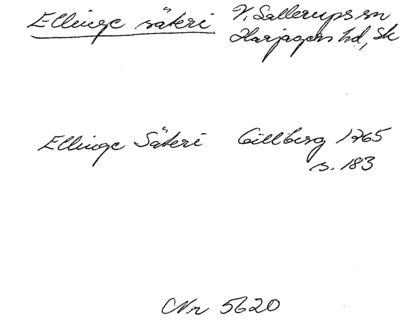 Ellinge säteri V. Sallerups sn
Harjagers hd, Sk
Ellinge Säteri Gillberg 1765
s. 183
Nr 5620